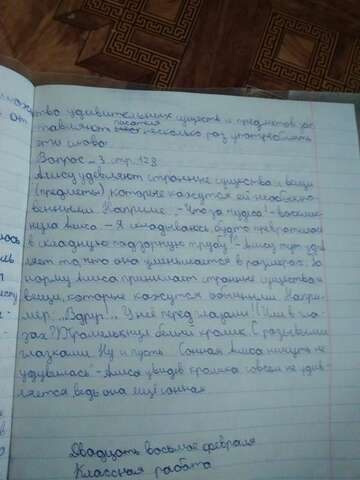 тво удивительных существ и предметов зас
тавляют писателя несколько раз употреблять
это слово.
Вопрос – 3. стр. 128
Алису удивляют странные существа и вещи
(предметы) которые кажутся ей необыкно-
венными. Например, - Что за чудеса! - восклик-
нула Алиса. - Я складываюсь, будто превратилась
в складную подзорную трубу! - Алису тут удив
ляет то, что она уменьшается в размерах. За
норму Алиса принимает странные существа и
вещи, которые кажутся обычными. Напри-
мер: ..Вдруг!.. У неё перед глазами!! Или в гла-
зах? Промелькнул белый кролик. С розовыми
глазками. Ну и пусть... Сонная Алиса ничуть не
удивилась" - Алиса увидев кролика совсем не удив-
ляется, ведь она ещё сонная
Двадцать восьмое февраля
Классная работа